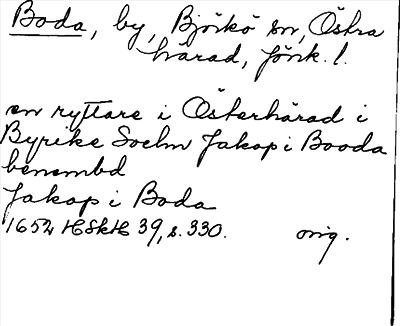 Boda, by, Björkö sn, Östra
härad, Jönk. l.
en ryttare i Österhärad i
Byrike Soehn Jakop i Booda
benembd
Jakop i Boda
1652 HSkH 39, s. 330. orig.